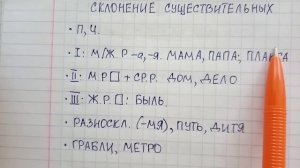 СКЛОНЕНИЕ СУЩЕСТВИТЕЛЬНЫХ
• П, Ч.
• I: М/Ж.Р -а, -я. МАМА, ПАПА;
• II: М.Р □ + СР.Р. ДОМ, ДЕЛО
• III: Ж.Р. □: БЫЛЬ.
• РАЗНОСКЛ. (-МЯ), ПУТЬ, ДИТЯ
• ГРАБЛИ, МЕТРО